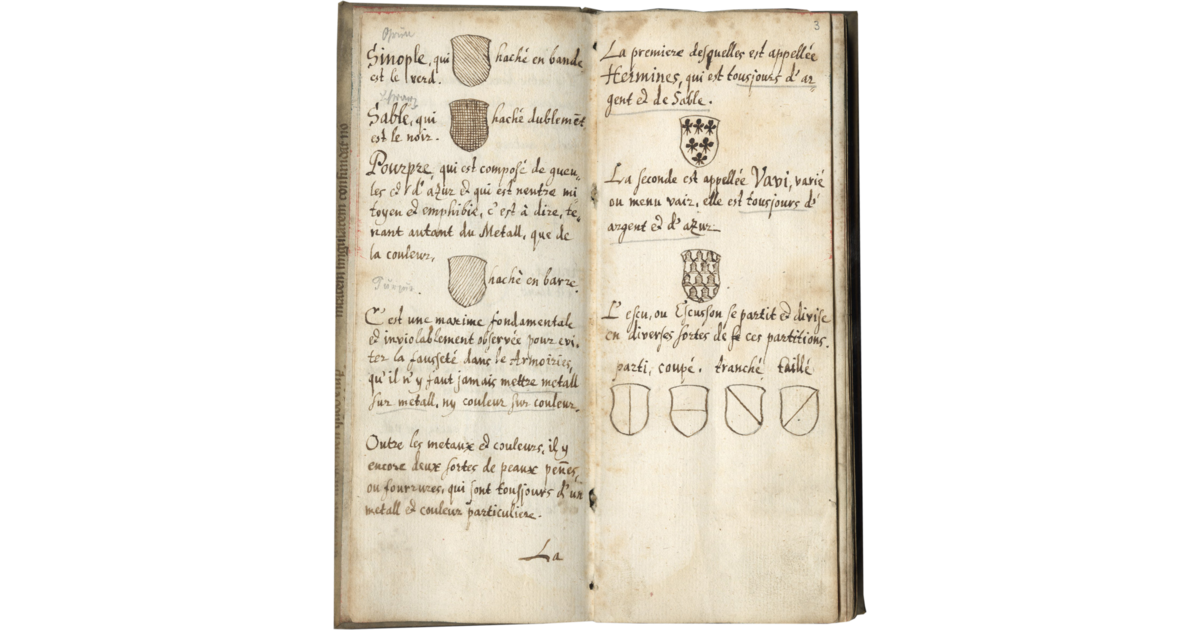 Sinople, qui haché en bande
est le verd.
Sable, qui haché dublemēt
est le noir.
Pourpre, qui est composé de gueu,
les et d'azur et qui est neutre mi
toyen et emphibie, c'est à dire, te,
nant autant du Metall, que de
la couleur,
haché en barre.
C'est une maxime fondamentale
et inviolablement observée pour evi,
ter la fausseté dans le Armoiries,
qu'il n'y faut jamais mettre metall
sur metall, ny couleur sur couleur,
Outre les metaux et couleurs, il y
encore deux sortes de peaux penēs,
ou fourrures, qui sont tousjours d'un
metall et couleur particuliere.
La
3
La premiere desquelles est appellée
Hermines, qui est tousjours d'ar
gent et de Sable.
La seconde est appellée Vavi, varié
ou menu vair, elle est tousjours d'
argent et d'azur
L'escu, ou Escusson se partit et divise
en diverses sortes de ces partitions.
parti, coupé. tranché taillé